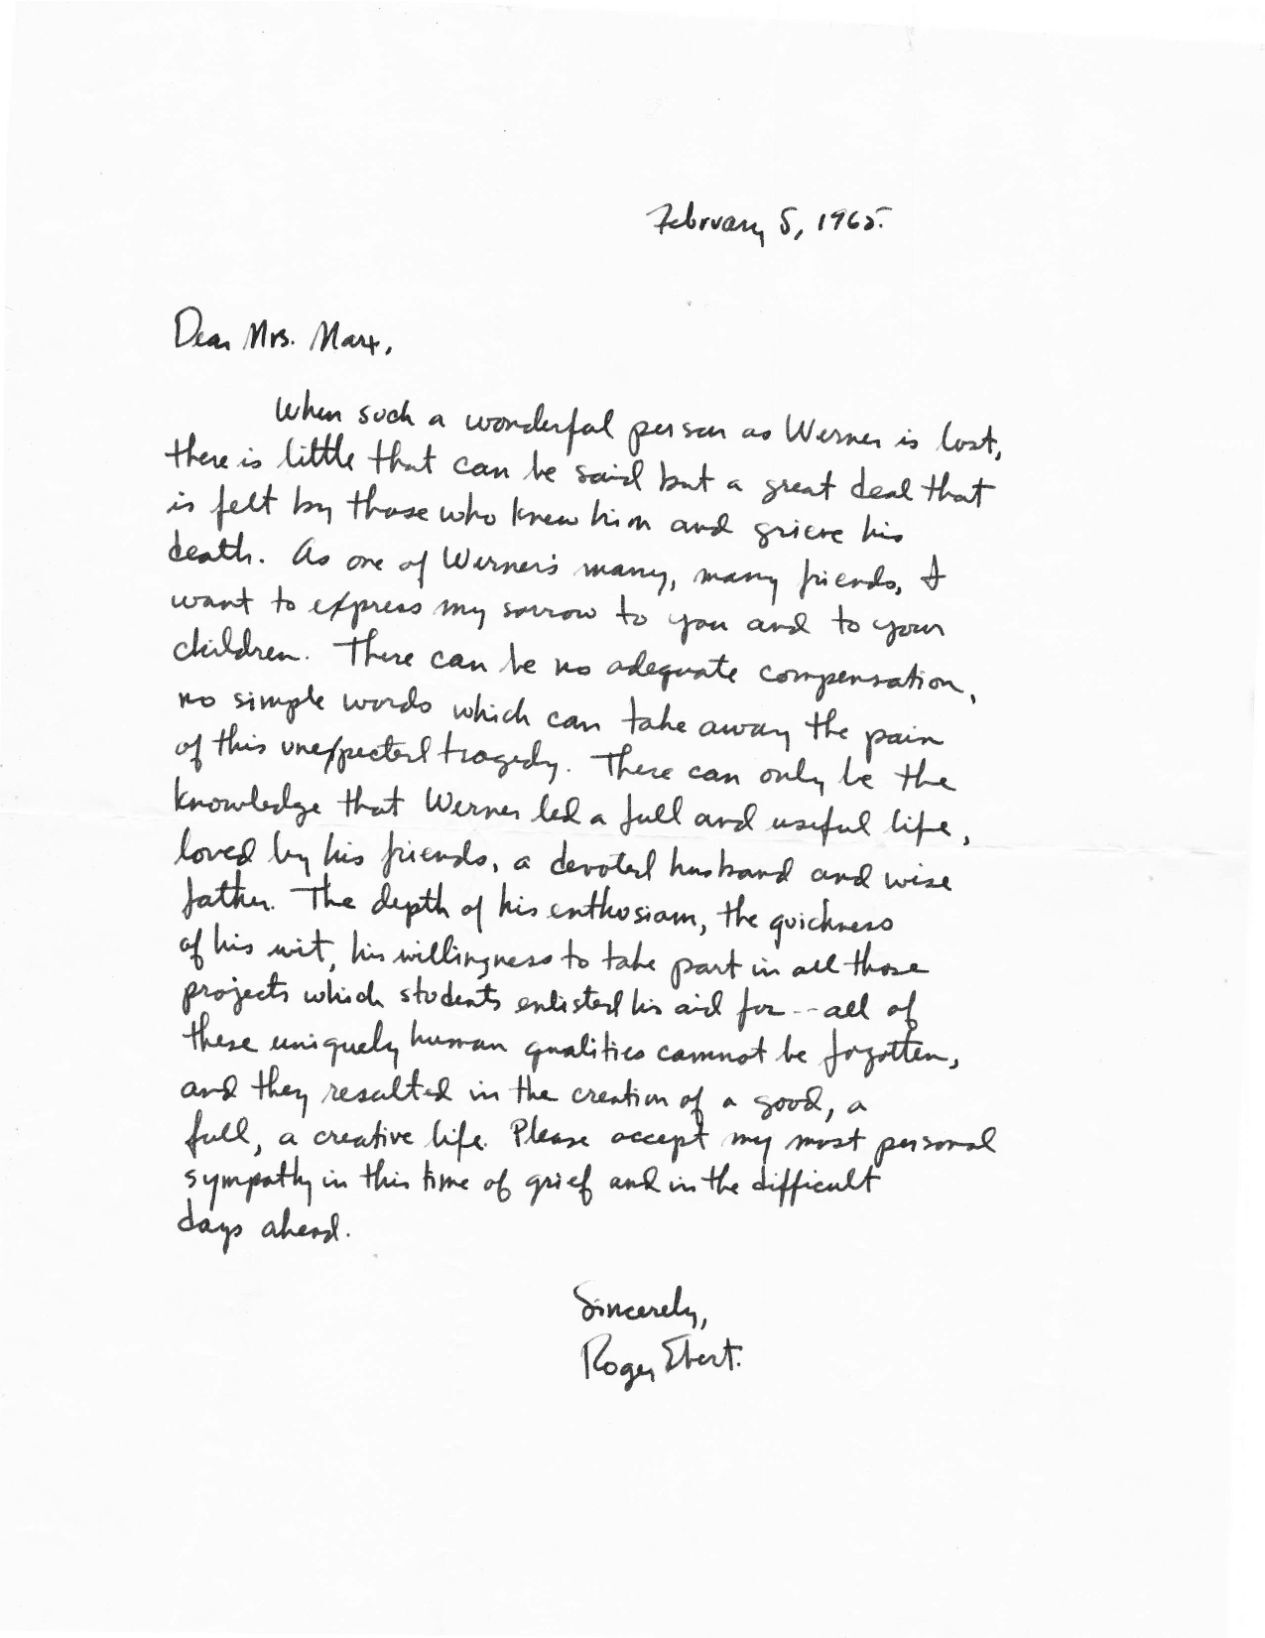 February 5, 1965.
Dear Mrs. Marx,
When such a wonderful person as Werner is lost,
there is little that can be said but a great deal that
is felt by those who knew him and grieve his
death. As one of Werner's many, many friends, I
want to express my sorrow to you and to your
children. There can be no adequate compensation,
no simple words which can take away the pain
of this unexpected tragedy. There can only be the
knowledge that Werner led a full and useful life,
loved by his friends, a devoted husband and wise
father. The depth of his enthusiasm, the quickness
of his wit, his willingness to take part in all those
projects which students enlisted his aid for--all of
these uniquely human qualities cannot be forgotten,
and they resulted in the creation of a good, a
full, a creative life. Please accept my most personal
sympathy in this time of grief and in the difficult
days ahead.
Sincerely,
Roger Ebert.